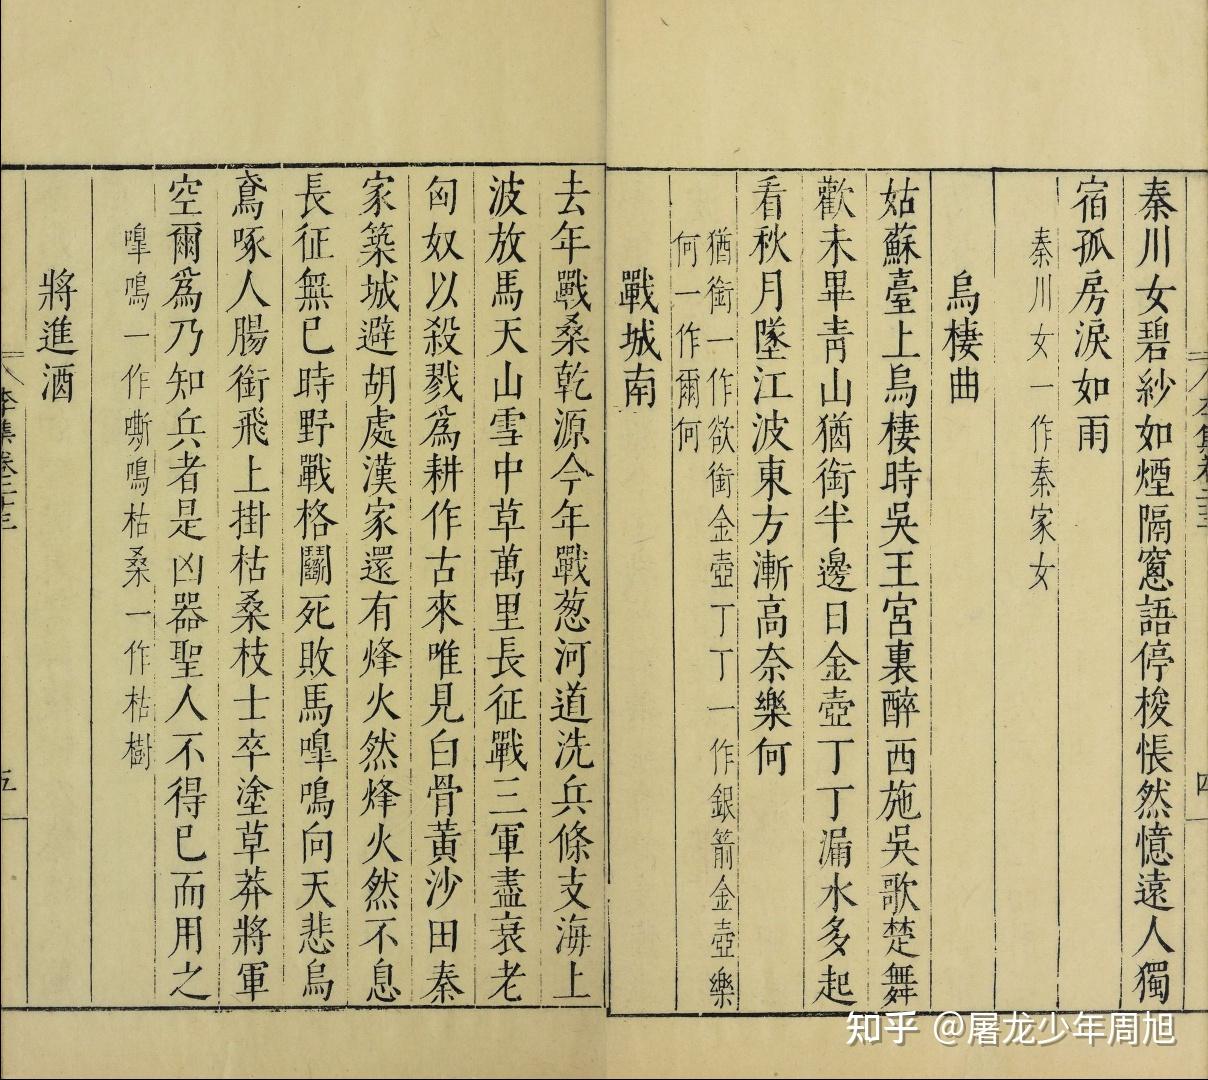 四
秦川女碧紗如煙隔窻語停梭悵然憶遠人獨
宿孤房淚如雨
秦川女一作秦家女
烏棲曲
姑蘇臺上烏棲時吳王宮裏醉西施吳歌楚舞
歡未畢青山猶銜半邊日金壺丁丁漏水多起
看秋月墜江波東方漸高奈樂何
猶銜一作欲銜金壺丁丁一作銀箭金壺樂
何一作爾何
戰城南
去年戰桑乾源今年戰葱河道洗兵條支海上
波放馬天山雪中草萬里長征戰三軍盡衰老
匈奴以殺戮爲耕作古來唯見白骨黃沙田秦
家築城避胡處漢家還有烽火然烽火然不息
長征無已時野戰格鬭死敗馬嘷鳴向天悲烏
鳶啄人腸銜飛上掛枯桑枝士卒塗草莽將軍
空爾爲乃知兵者是凶器聖人不得已而用之
嘷鳴一作嘶鳴枯桑一作枯樹
將進酒
五
知乎 @屠龙少年周旭